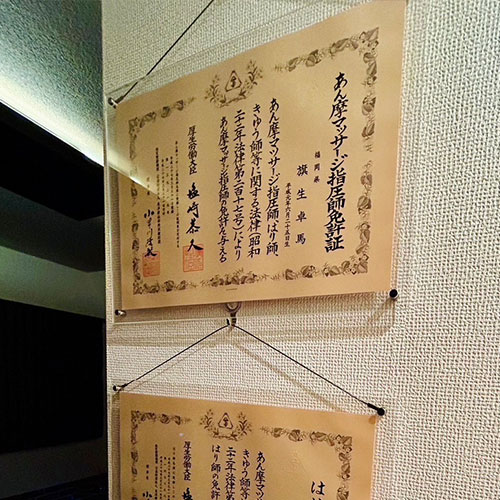 あん摩マッサージ指圧師免許証
福岡県
旗生卓馬
平成元年六月二十五日生
あん摩マッサージ指圧師、はり師、
きゅう師等に関する法律(昭和
二十二年法律第二百十七号)により
あん摩マッサージ指圧師の免許を与える
厚生労働大臣 塩崎恭久
は
あん摩マッ
きゅう師等
二十二年法律第
はり師の免許
厚生労働大臣